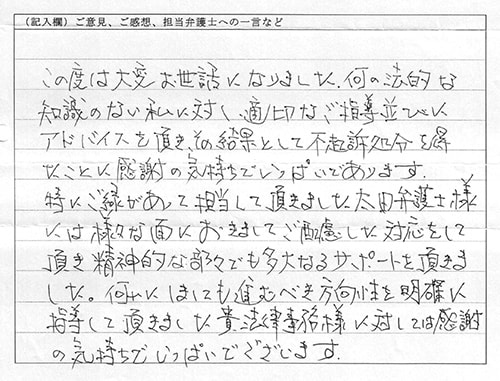 （記入欄）ご意見、ご感想、担当弁護士への一言など
この度は大変お世話になりました。何の法的な
知識のない私に対し、適切なご指導並びに
アドバイスを頂き、その結果として不起訴処分を得
たことに感謝の気持ちでいっぱいであります。
特にご縁があって担当して頂きました太田弁護士様
には様々な面におきましてご配慮した対応をして
頂き精神的な部分でも多大なるサポートを頂きま
した。何にしましても進むべき方向性を明確に
指導して頂きました貴法律事務様に対しては感謝
の気持ちでいっぱいでございます。